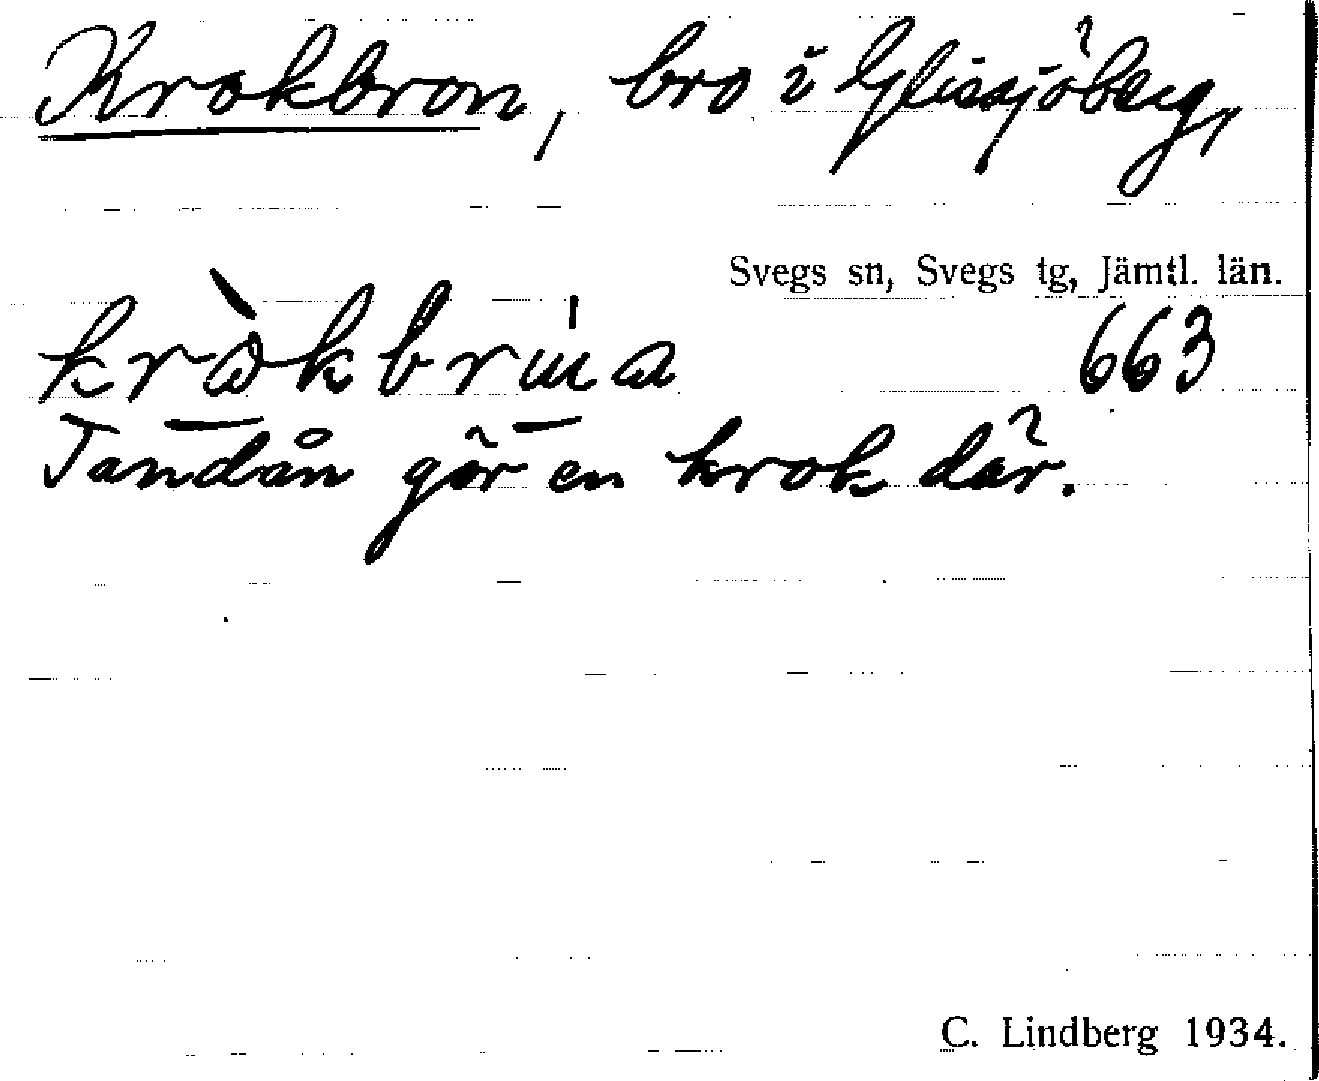 Krokbron, bro i Glissjöberg,
Svegs sn, Svegs tg, Jämtl. län.
663
Tandån gör en krok där.
C. Lindberg 1934.